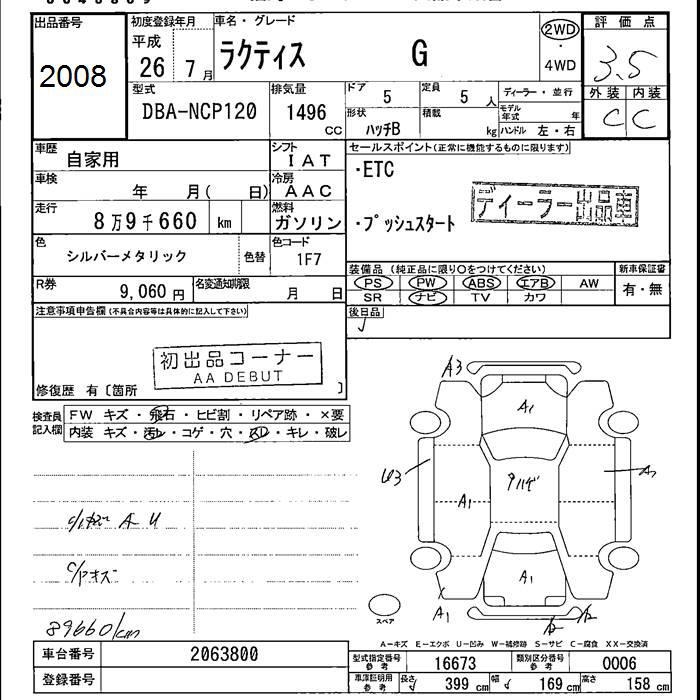 出品番号
2008
初度登録年月
平成
26 7月
車名・グレード
ラクティス G
2WD
・
4WD
評価点
3.5
外装 内装
C C
型式
DBA-NCP120
排気量
1496
CC
ドア
5
定員
5 人
形状
ハッチB
積載
kg
ディーラー・並行
モデル年式 年
ハンドル 左・右
車歴
自家用
シフト
IAT
車検
年 月( 日)
冷房
AAC
走行
8万9千660 km
燃料
ガソリン
色
シルバーメタリック
色替
色コード
1F7
R券
9,060円
名変通知期限
月 日
セールスポイント(正常に機能するものに限ります)
・ETC
・プッシュスタート
ディーラー出品車
装備品 (純正品に限り○をつけてください)
PS PW ABS エアB AW
SR ナビ TV カワ
新車保証書
有・無
後日品
注意事項申告欄(不具合内容等は具体的に記入して下さい)
初出品コーナー
AA DEBUT
修復歴 有〔箇所 〕
検査員
記入欄
FW キズ・飛石・ヒビ割・リペア跡・×要
内装 キズ・汚レ・コゲ・穴・スレ・キレ・破レ
A3
A1
U3
A1
A1
A1
スペア
89660/km
A-キズ E-エクボ U-凹み W-補修跡 S-サビ C-腐食 XX-交換済
車台番号
2063800
登録番号
型式指定番号
参考
16673
類別区分番号
参考
0006
車庫証明用
参考
長さ 399 cm 幅 169 cm 高さ 158 cm